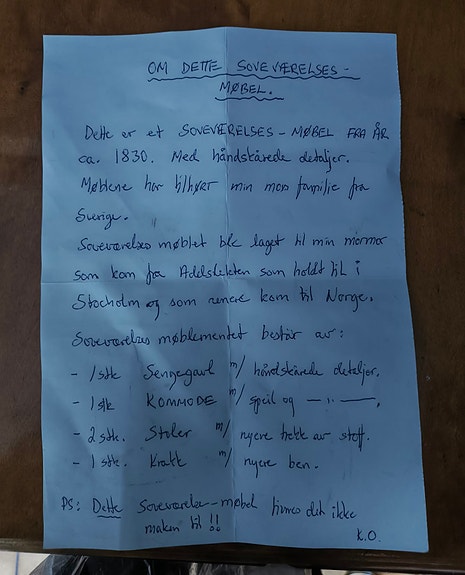 OM DETTE SOVEVÆRELSES -
MØBEL.
Dette er et SOVEVÆRELSES - MØBEL FRA ÅR
ca. 1830. Med håndskårede detaljer.
Møblene har tilhørt min mors familie fra
Sverige.
Soveværelses møblet ble laget til min mormor
som kom fra Adelsslekten som holdt til i
Stocholm og som senere kom til Norge.
Soveværelses møblementet består av:
- 1 stk Sengegavl m/ håndskårede detaljer.
- 1 stk KOMMODE m/ speil og — " —.
- 2 stk. Stoler m/ nyere trekk av stoff.
- 1 stk. Krakk m/ nyere ben.
PS: Dette Soveværelse-møbel finnes det ikke
maken til !!
K.O.